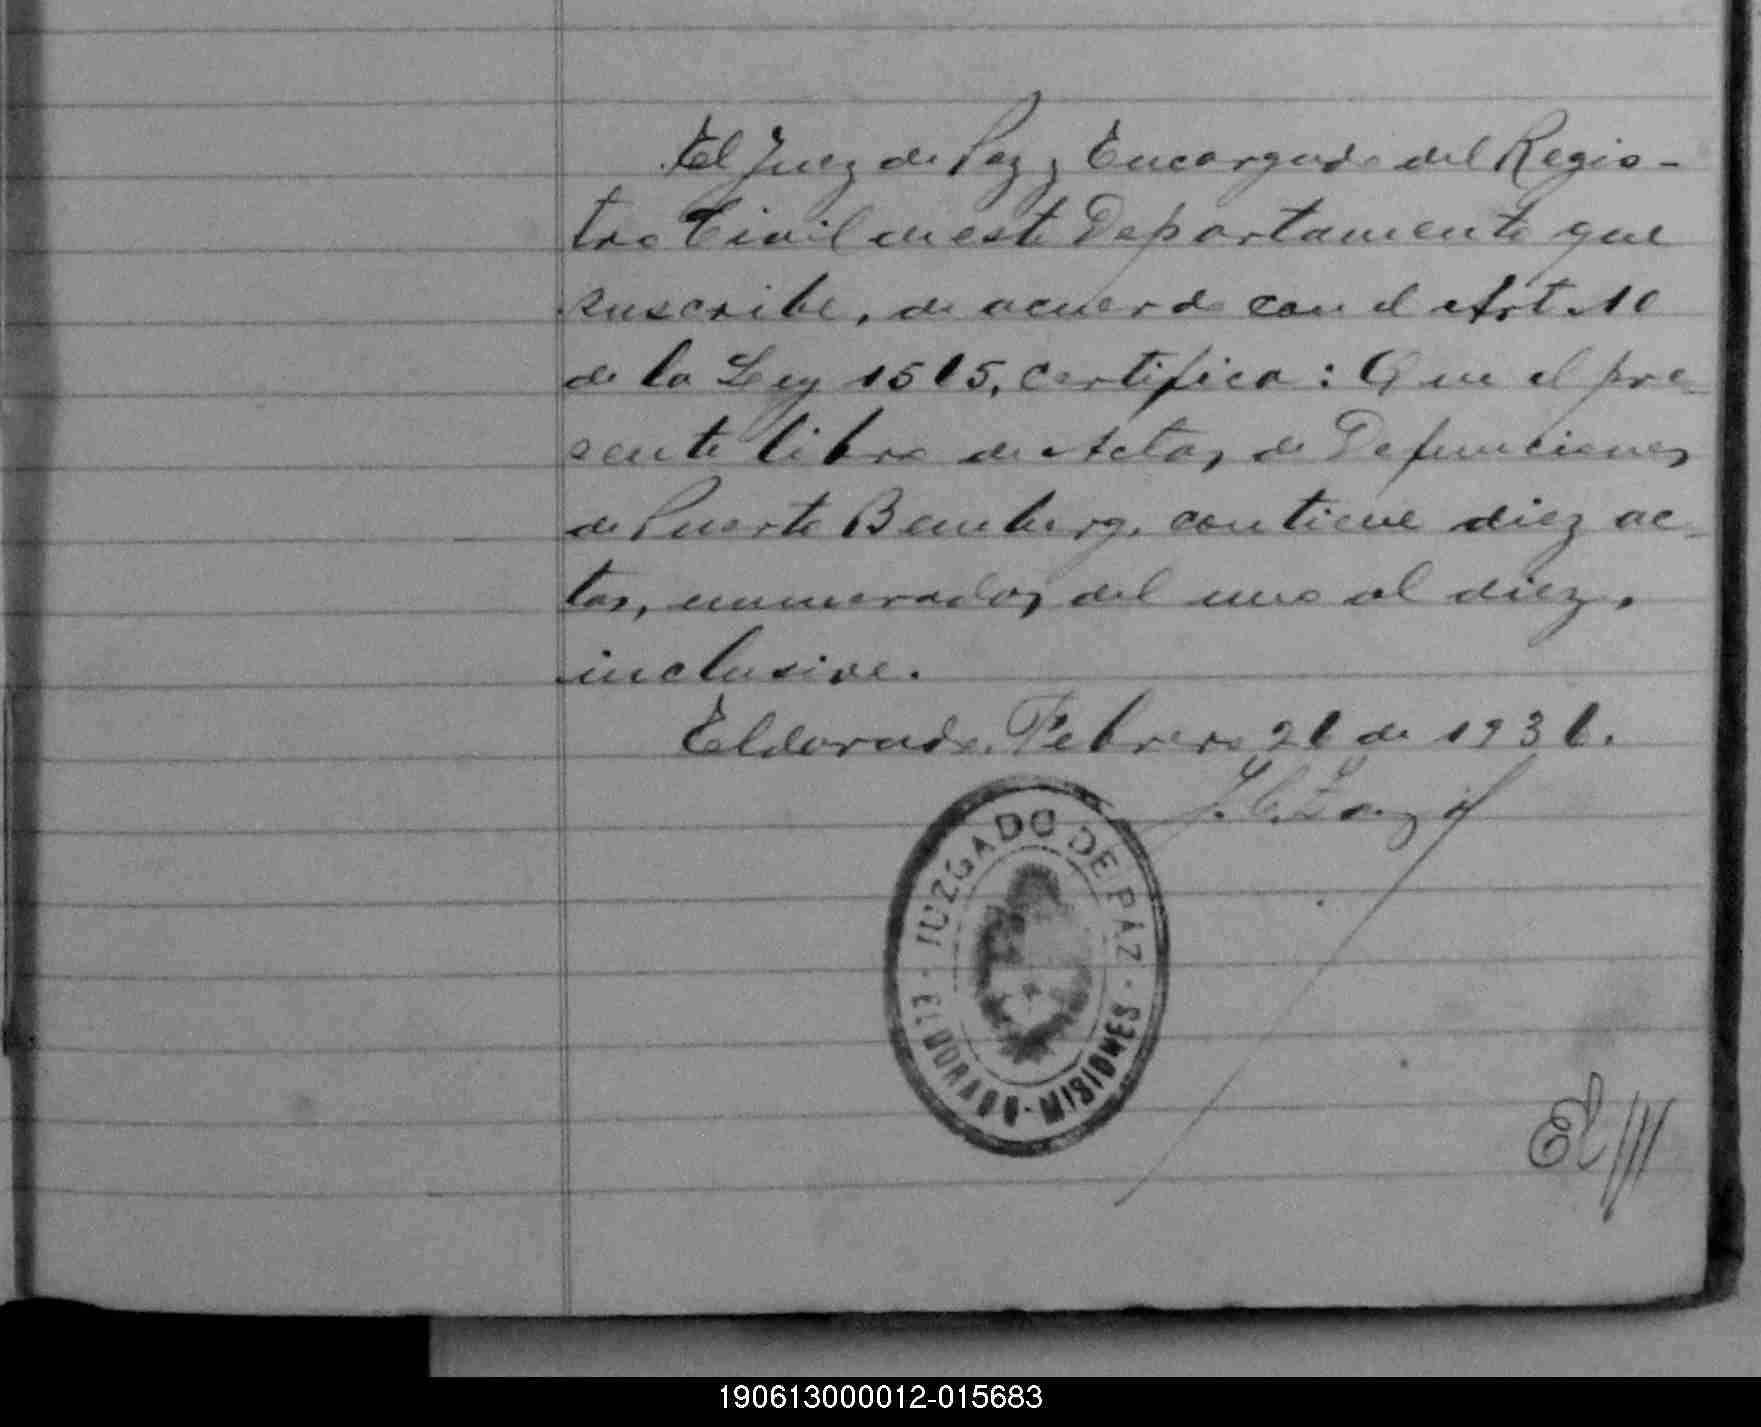 El Juez de Paz y Encargado del Regis-
tro Civil en este Departamento que
suscribe, de acuerdo con el Art. 10
de la Ley 1565, certifica: Que el pre-
sente libro de Actas de Defunciones
de Puerto Bemberg, contiene diez ac-
tas, numeradas del uno al diez,
inclusive.
Eldorado, Febrero 21 de 1931.
JUZGADO DE PAZ
ELDORADO - MISIONES
190613000012-015683